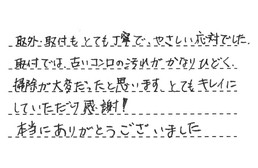 取外・取付もとても丁寧で、やさしい応対でした。
取付では、古いコンロの汚れがかなりひどく、
掃除が大変だったと思います。とてもキレイに
していただけ感謝!
本当にありがとうございました